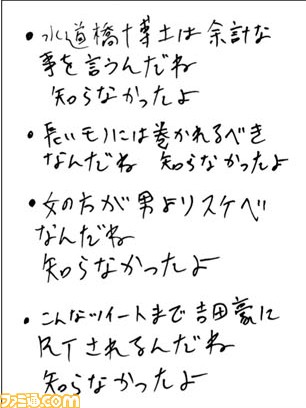 ・水道橋博士は余計な
事を言うんだね
知らなかったよ
・長いモノには巻かれるべき
なんだね 知らなかったよ
・女の方が男よりスケベ
なんだね
知らなかったよ
・こんなツイートまで吉田豪に
RTされるんだね
知らなかったよ
ファミ通.com